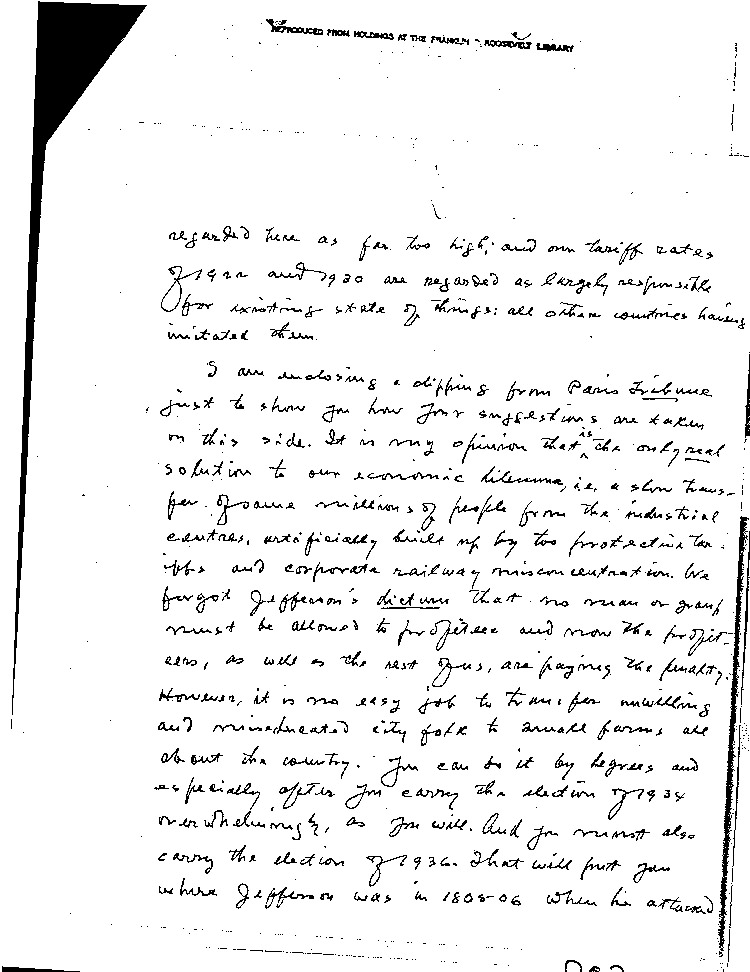 REPRODUCED FROM HOLDINGS AT THE FRANKLIN D. ROOSEVELT LIBRARY
regarded here as far too high; and our tariff rates
of 1922 and 1930 are regarded as largely responsible
for existing state of things: all other countries having
imitated them.
I am enclosing a clipping from Paris Tribune
just to show you how your suggestions are taken
on this side. It is my opinion that as the only real
solution to our economic dilemma, i.e. a slow trans-
fer of some millions of people from the industrial
centres, artificially built up by too protective tar-
iffs and corporate railway misconcentration. We
forgot Jefferson's dictum that no man or group
must be allowed to profiteer and now the profit-
eers, as well as the rest of us, are paying the penalty.
However, it is no easy job to transfer unwilling
and miseducated city folk to small farms all
about the country. You can do it by degrees and
especially after you carry the election of 1934
overwhelmingly, as you will. And you must also
carry the election of 1936. That will put you
where Jefferson was in 1805-06 when he attacked